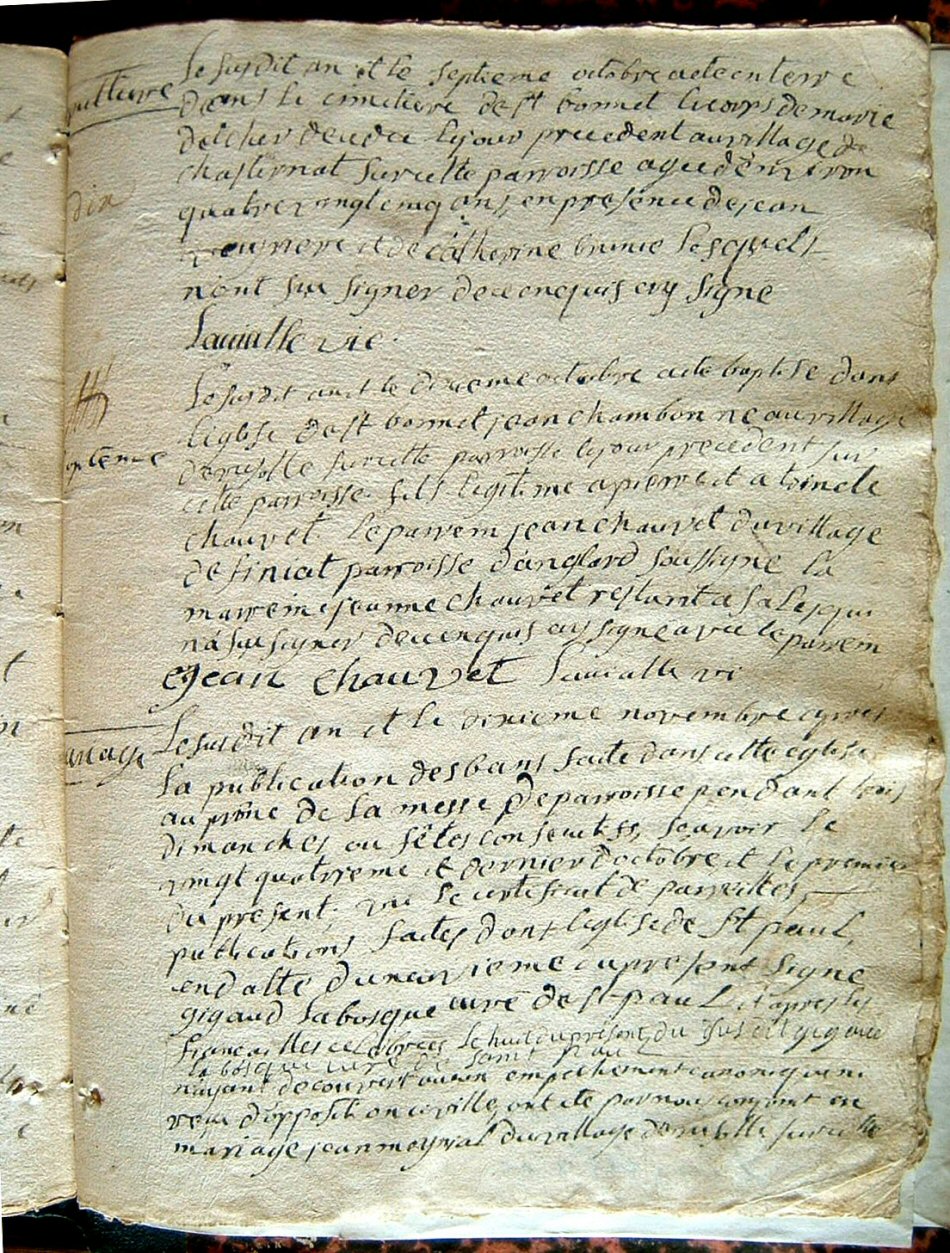 pulture
Le susdit an et le septieme octobre a ete enterre
dans le cimetiere de st bonnet le corps de marie
delcher decedee le jour precedent au village de
chasternat sur cette parroisse agee d'environ
quatre vingt cinq ans, en presence de jean
et de catherine brunie lesquels
n'ont scu signer de ce enquis ay signe
Lavialle vic.
Le susdit an et le dixieme octobre a ete baptise dans
l'eglise de st bonnet jean chambon ne au village
bapteme
de sur cette parroisse le jour precedent sur
cette parroisse fils legitime a pierre et a toinete
chauvet le parrein jean chauvet du village
de finiat parroisse d'anglard soussigne la
marreine jeanne chauvet restant a salesqui
n'a scu signer de ce enquis ay signe avec le parrein
Jean Chauvet Lavialle vi
ariage
Le susdit an et le dixieme novembre apres
la publication des bans faite dans cette eglise
au prône de la messe de parroisse pendant trois
dimanches ou fêtes consecutifs, scavoir le
vingt quatrieme et dernier d'octobre et le premier
du present, vu le certificat de pareilles
publications faites dans l'eglise de St paul,
en datte du neuvieme du present signe
gigaud labosque curé de St paul et apres les
fiancailles celebrees le huit du present du susdit gigaud
la bosque curé de saint paul
n'ayant decouvert aucun empechement canonique ni
reçu d'opposition civille, ont ete par nous conjoint en
mariage jean meynial du village de sur cette